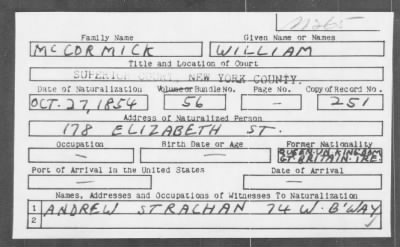 Family Name Given Name or Names
McCORMICK WILLIAM
Title and Location of Court
SUPERIOR COURT, NEW YORK COUNTY.
Date of Naturalization Volume or Bundle No. Page No. Copy of Record No.
OCT. 27, 1854 56 — 251
Address of Naturalized Person
178 ELIZABETH ST.
Occupation Birth Date or Age Former Nationality
— — QUEEN UN. KINGDAM
GT. BRITAIN. IRE.
Port of Arrival in the United States Date of Arrival
— —
Names, Addresses and Occupations of Witnesses To Naturalization
1 ANDREW STRACHAN 74 W. B'WAY
2